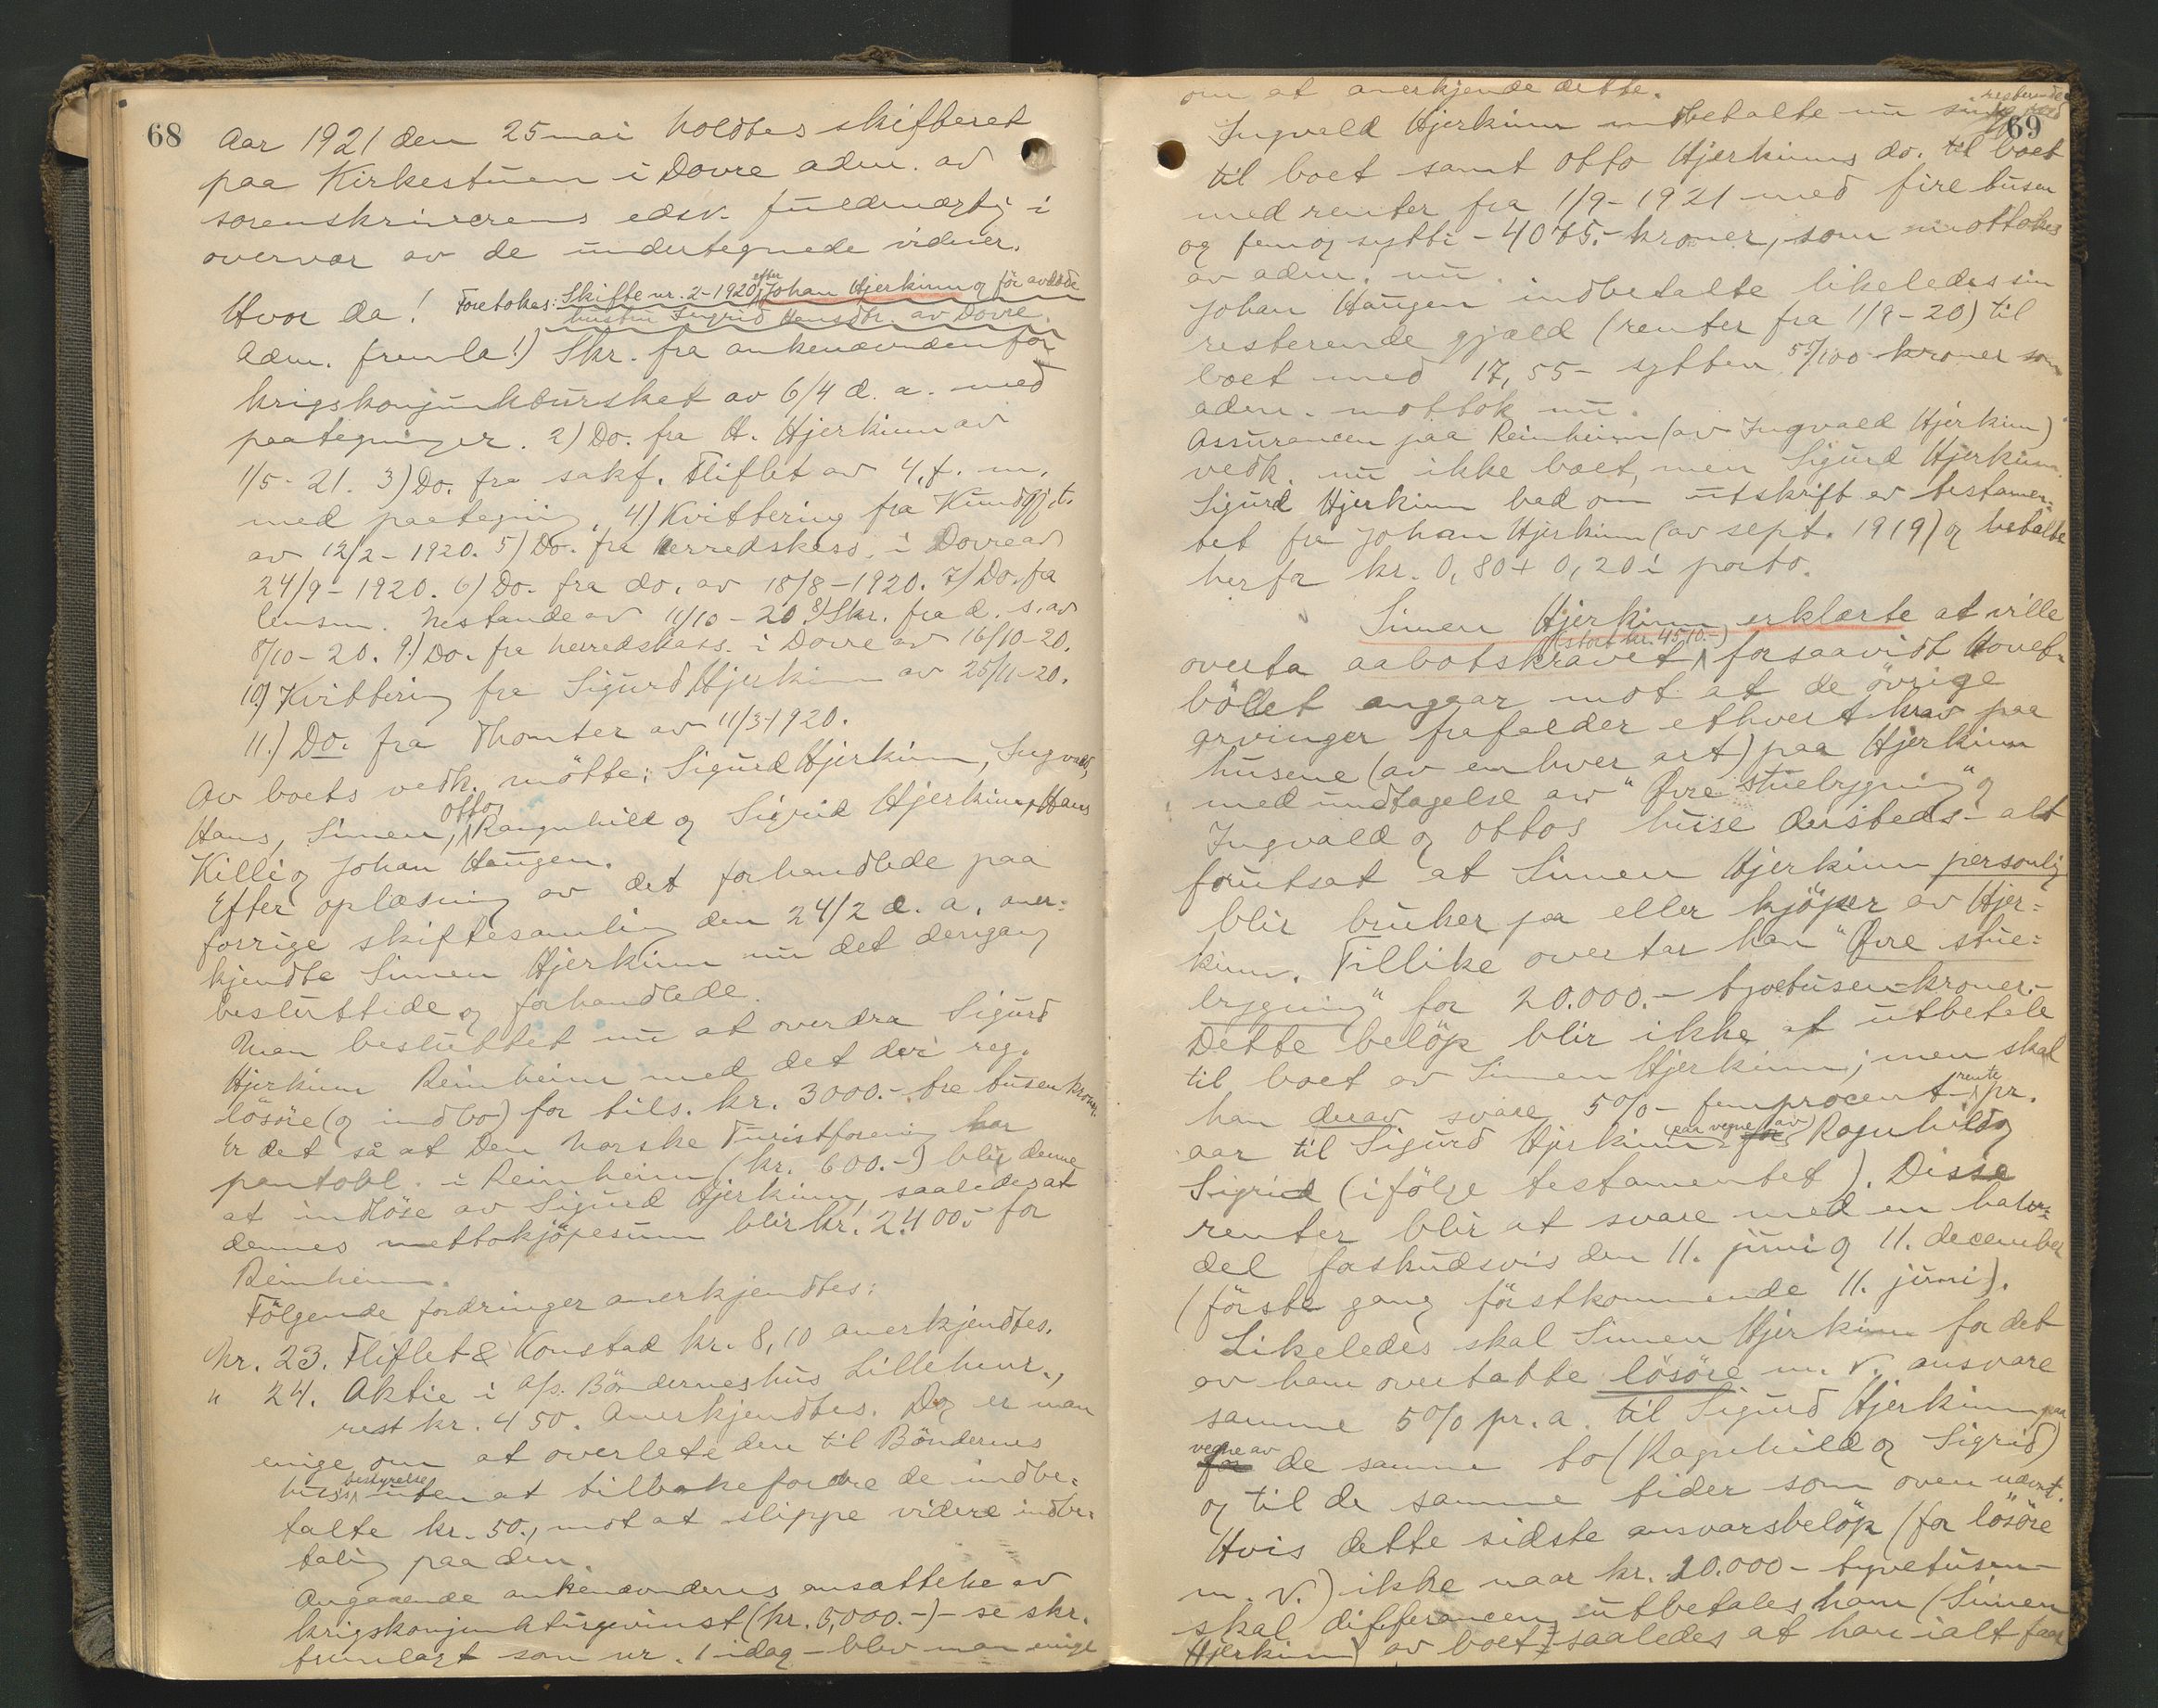 68
Aar 1921 den 25 mai holdtes skifteret
paa Kirkestuen i Dovre adm. av
sorenskriverens edsv. fuldmægtig i
overvær av de undertegnede vidner.
Hvor da! Foretokes: Skifte nr. 2-1920 efter Johan Hjerkinn og før avdøde
hustru Ingrid Hansdtr. av Dovre.
Adm. fremla 1) Skr. fra ankenævnden for
krigskonjunktursket av 6/4 d. a. med
paategninger. 2) Do. fra H. Hjerkinn av
1/5-21. 3) Do. fra sakf. Fliflet av 4. f. m.
med paategning. 4) Kvittering fra Kundgj.t.
av 12/2-1920. 5) Do. fra herredskass. i Dovre av
24/9-1920. 6) Do. fra do. av 18/8-1920. 7) Do. fra
lensm. Nestande av 11/10-20 8) Skr. fra d. s. av
8/10-20. 9.) Do. fra herredskass. i Dovre av 16/10-20.
10) Kvittering fra Sigurd Hjerkinn av 25/11-20.
11.) Do. fra Thomter av 11/3-1920.
Av boets vedk. møtte: Sigurd Hjerkinn, Ingvald,
Hans, Simen, Otto, Rangnhild og Sigrid Hjerkinn, Hans
Killi og Johan Haugen.
Efter oplæsning av det forhandlede paa
forrige skiftesamling den 24/2 d. a. aner=
kjendte Simen Hjerkinn nu det dengang
besluttede og forhandlede.
Man besluttet nu at overdra Sigurd
Hjerkinn Reinheim med det deri reg.
løsøre (og indbo) for tils. kr. 3000.- tre tusen kroner.
Er det så at Den Norske Turistforening har
pantobl. i Reinheim (kr. 600.-) blir denne
at indløse av Sigurd Hjerkinn, saaledes at
dennes nettokjøpesum blir kr. 2400.- for
Reinheim.
Følgende fordringer anerkjendtes:
Nr. 23. Fliflet & Konstad kr. 8,10 anerkjendtes.
" 24. Aktie i A/s. Bøndernes hus Lillehmr.,
rest kr. 450. Anerkjendtes. Dog er man
enige om at overlate den til Bøndernes
hus's bestyrelse uten at tilbakefordre de indbe=
talte kr. 50., mot at slippe videre indbe=
taling paa den.
Angaaende ankenævndens ansættelse av
krigskonjunkturgevinst (kr. 5,000.-) - se skr.
fremlagt som nr. 1 idag - blev man enige
69
om at anerkjende dette.
Ingvald Hjerkinn indbetalte nu sin resterende gjæld
til boet samt Otto Hjerkinns do. til boet
med renter fra 1/9-1921 med fire tusen
og femogsytti - 4075.- kroner, som mottokes
av adm. nu.
Johan Haugen indbetalte likeledes sin
resterende gjæld (renter fra 1/9-20) til
boet med 17,55 - sytten 55/100 kroner som
adm. mottok nu.
Assurancen paa Reinheim (av Ingvald Hjerkinn)
vedk. nu ikke boet, men Sigurd Hjerkinn.
Sigurd Hjerkinn bad om utskrift av testamen=
tet fra Johan Hjerkinn (av sept. 1919) og betalte
herfor kr. 0,80 + 0,20 i porto.
Simen Hjerkinn erklærte at ville
overta aabotskravet (stort kr. 4510.-) forsaavidt Hoved=
bølet angaar mot at de øvrige
arvinger frafalder ethvert krav paa
husene (av enhver art) paa Hjerkinn
med undtagelse av "Øvre stuebygning" og
Ingvald og Ottos huse dersteds - alt
forutsat at Simen Hjerkinn personlig
blir bruker paa eller kjøper av Hjer=
kinn. Tillike overtar han "Øvre stue=
bygning" for 20.000.- tyvetusen kroner.-
Dette beløp blir ikke at utbetale
til boet av Simen Hjerkinn; men skal
han derav svare 5% - femprocent rente pr.
aar til Sigurd Hjerkinn paa vegne av Ragnhild og
Sigrid (ifølge testamentet). Disse
renter blir at svare med en halv=
del forskudsvis den 11. juni og 11. december
(første gang førstkommende 11. juni).
Likeledes skal Simen Hjerkinn for det
av ham overtatte løsøre m. v. ansvare
samme 5% pr. a. til Sigurd Hjerkinn paa
vegne av for de samme to (Ragnhild og Sigrid)
og til de samme tider som oven nævnt.
Hvis dette sidste ansvarsbeløp (for løsøre
m. v.) ikke naar kr. 20.000 - tyvetusen -
skal differancen utbetales ham (Simen
Hjerkinn) av boet, saaledes at han ialt faar